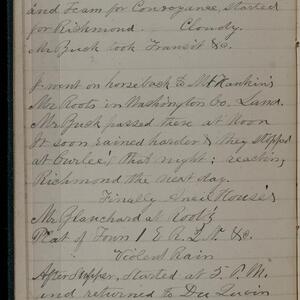 and Team for Conveyance, started
for Richmond. Cloudy.
Mr Buck took Transit &c.
I went on horseback to Mt Rankin's
Mr Roots in Washington Co. Land.
Mr Buck passed there at Noon
It soon rained harder & they stopped
at that night; reaching
Richmond the next day.
Finely House's
Mr Blanchard at Root's
Plat of Town 1 E R. 2 &c.
Violent Rain
After Supper, started at 5 P.M.
and returned to Du Quoin